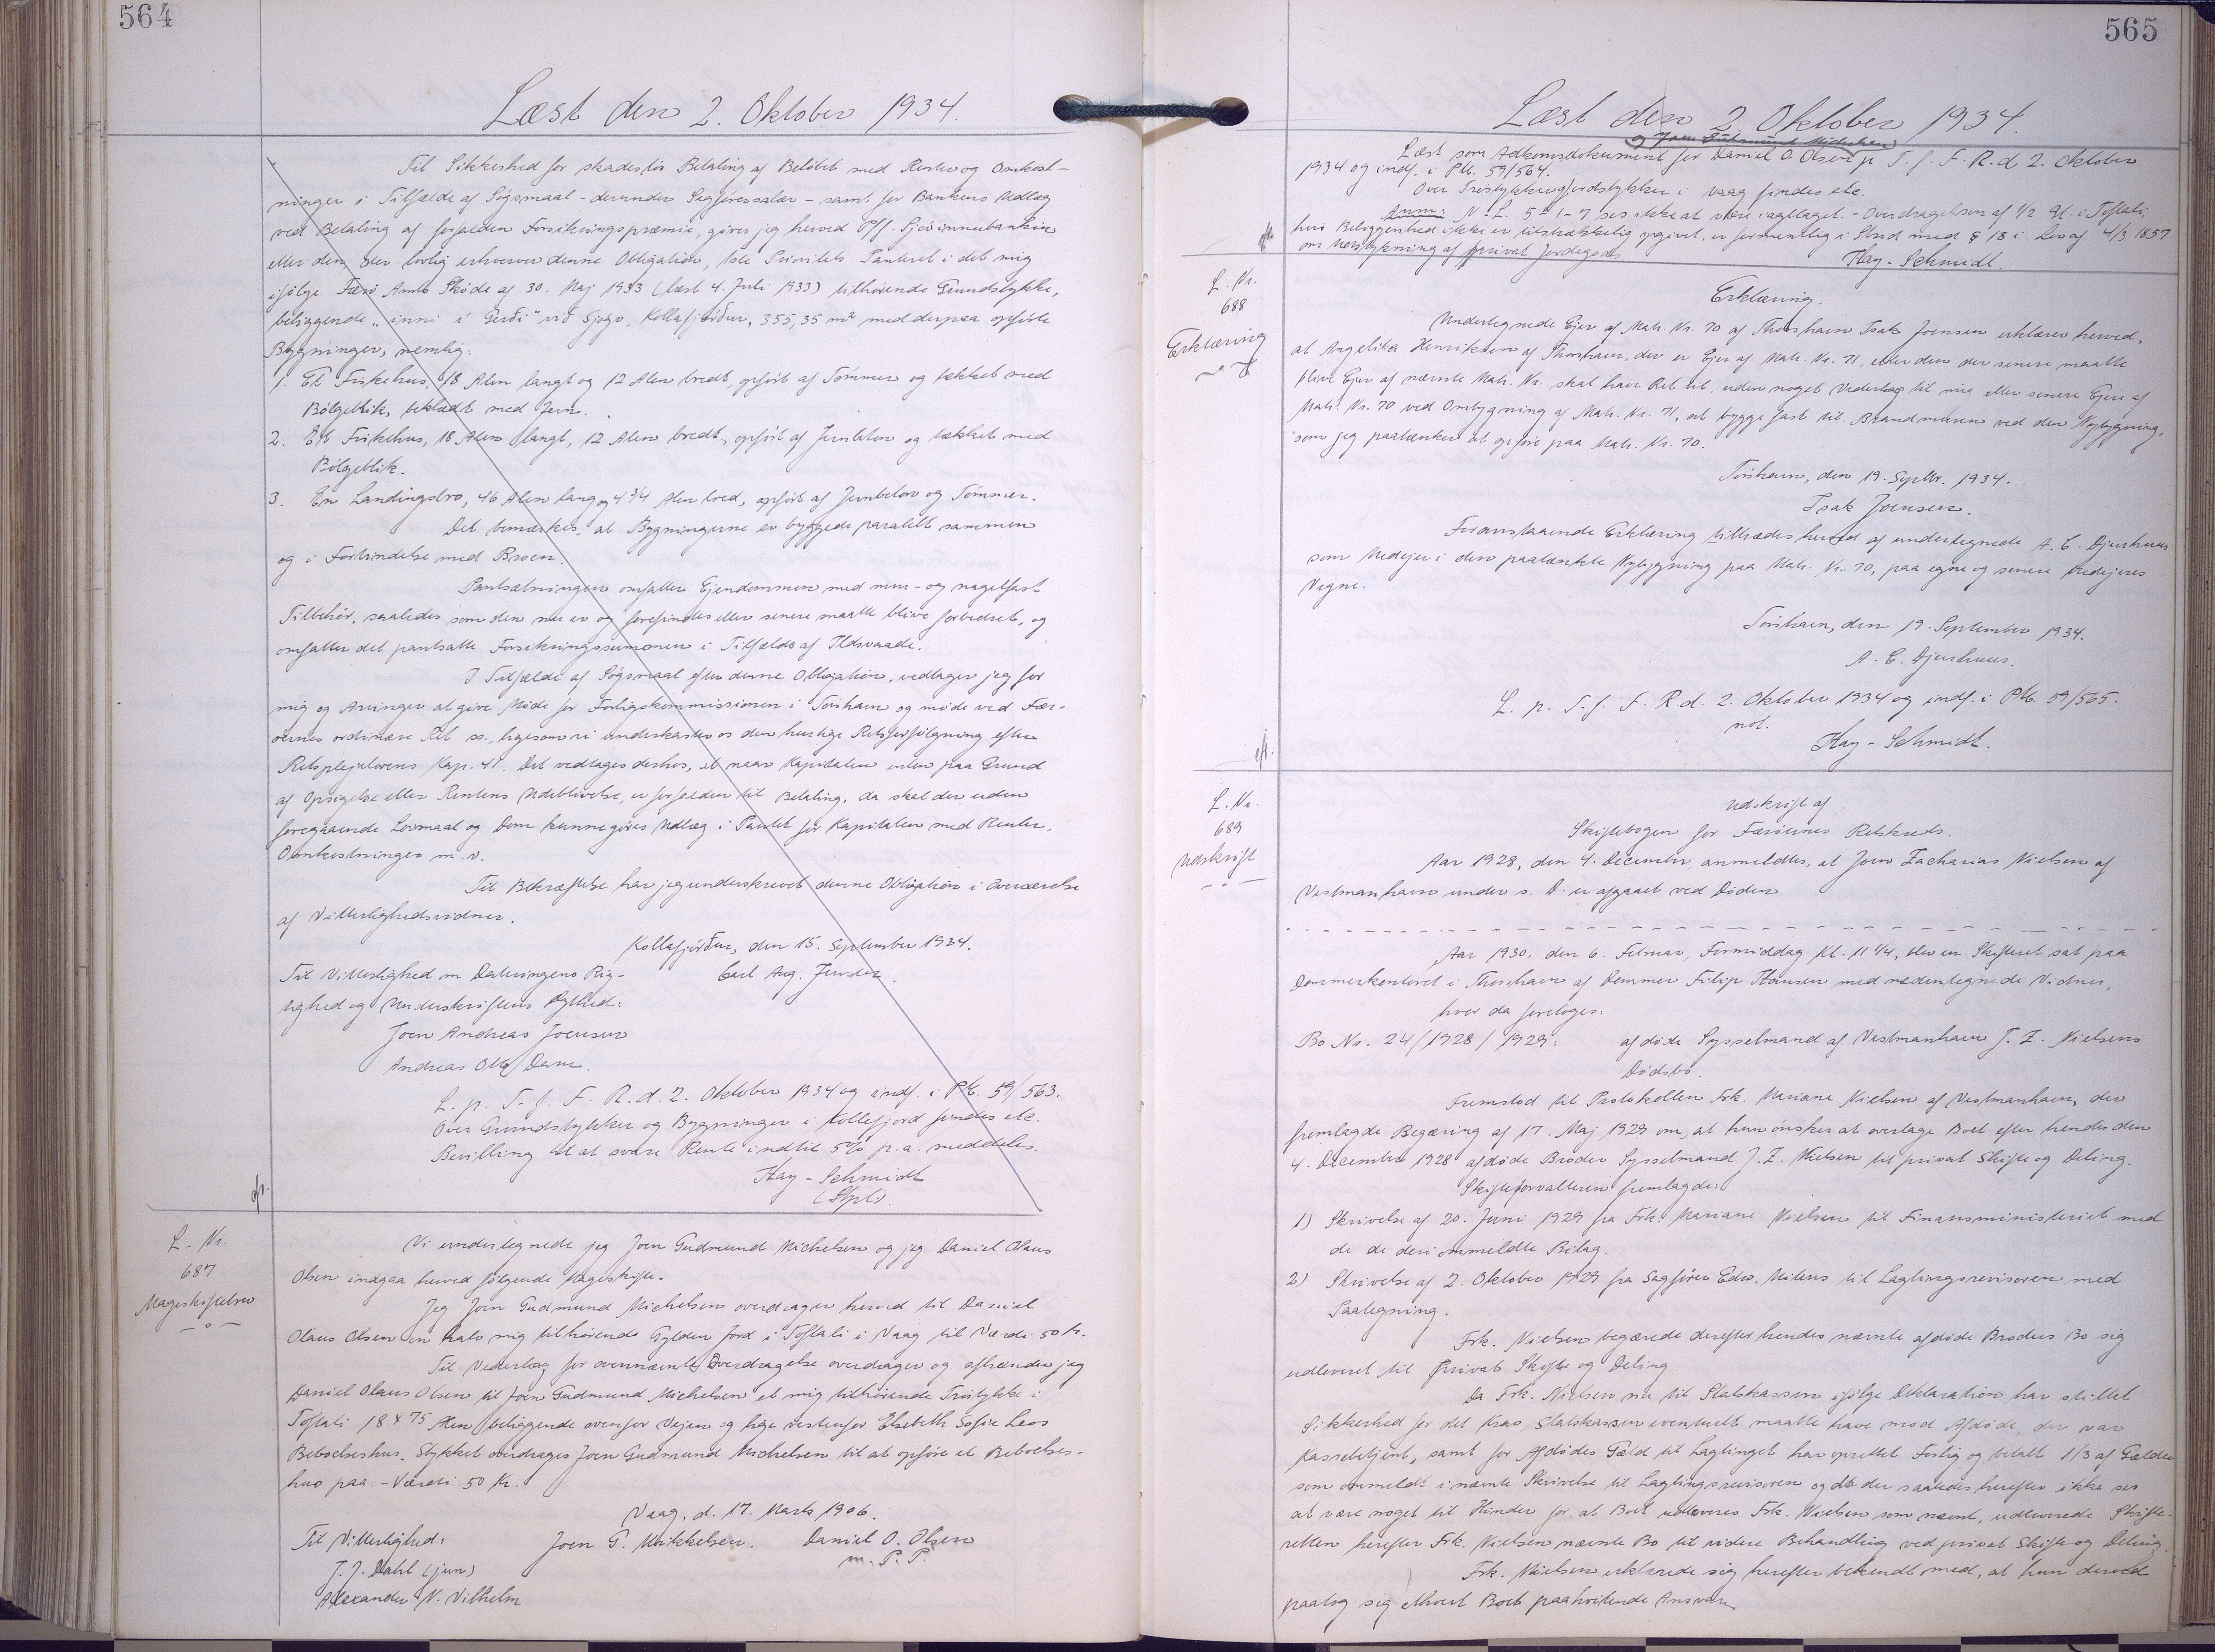 564
Læst den 2. Oktober 1934.
Til Sikkerhed for skadesløs Betaling af Beløbet med Renter og Omkost-
ninger i Tilfælde af Søgsmaal - derunder Sagførersalær - samt for Bankens Udlæg
ved Betaling af forfalden Forsikringspræmie, giver jeg herved Pff. Sjóvinnubankin
eller den der lovlig erhverver denne Obligation, 1ste Prioritets Panteret i det mig
ifølge Færø Amts Skøde af 30. Maj 1933 (læst 4. Juli 1933) tilhørende Grundstykke,
beliggende "inni í Gerði" við Sjógv, Kollafjørður, 355,35 m² med derpaa opførte
Bygninger, nemlig:
1. Et Fiskehus, 18 Alen langt og 12 Alen bredt, opført af Tømmer og tækket med
Bølgeblik, beklædt med Jern.
2. Et Fiskehus, 18 Alen langt, 12 Alen bredt, opført af Jernbeton og tækket med
Bølgeblik.
3. En Landingsbro, 46 Alen lang og 4 3/4 Alen bred, opført af Jernbeton og Tømmer.
Det bemærkes, at Bygningerne er byggede paralelt sammen
og i Forbindelse med Broen.
Pantsætningen omfatter Ejendommen med mur- og nagelfast
Tilbehør, saaledes som den nu er og forefindes eller senere maatte blive forbedret, og
omfatter det pantsatte Forsikringssummen i Tilfælde af Ildsvaade.
I Tilfælde af Søgsmaal efter denne Obligation, vedtager jeg for
mig og Arvinger at give Møde for Forligskommissionen i Tórshavn og møde ved Fær-
øernes ordinære Ret ss., ligesom vi underkaster os den hurtige Retsforfølgning efter
Retsplejelovens Kap. 41. Det vedtages derhos, at naar Kapitalen enten paa Grund
af Opsigelse eller Rentens Udeblivelse, er forfalden til Betaling, da skal der uden
foregaaende Lovmaal og Dom kunne gøres Udlæg i Pantet for Kapitalen med Renter,
Omkostninger m.v.
Til Bekræftelse har jeg underskrevet denne Obligation i Overværelse
af Vitterlighedsvidner.
Kollafjørður, den 15. September 1934.
Til Vitterlighed om Dateringens Rig- Carl Aug. Jensen.
tighed og Underskriftens Ægthed:
Joen Andreas Joensen
Andreas Dam.
L. p. T. f. F. R. d. 2. Oktober 1934 og indf. i Ptk. 59/563.
Over Grundstykker og Bygninger i Kollefjord findes etc.
Bevilling til at svare Rente indtil 5% p.a. meddeles.
Hay-Schmidt
L. Nr.
687
Mageskiftebrev
Vi undertegnede jeg Joen Gudmund Michelsen og jeg Daniel Olaus
Olsen indgaa herved følgende Mageskifte.
Jeg Joen Gudmund Michelsen overdrager herved til Daniel
Olaus Olsen en halv mig tilhørende Gylden Jord i Toftali i Vaag til Værdi 50 Kr.
Til Vederlag for ovennævnte Overdragelse overdrager og afhænder jeg
Daniel Olaus Olsen til Joen Gudmund Michelsen et mig tilhørende Trøstykke i
Toftali 18 x 75 Alen beliggende ovenfor Vejen og lige vestenfor Elsebeth Sofie Leos
Beboelseshus. Stykket overdrages Joen Gudmund Michelsen til at opføre et Beboelses-
hus paa. - Værdi 50 Kr.
Vaag, d. 17. Marts 1906.
Til Vitterlighed: Joen G. Mikkelsen. Daniel O. Olsen
J. J. Dahl (jun) m. P. P.
Alexander N. Vilhelm
565
Læst den 2. Oktober 1934.
og Joen Gudmund Michelsen
Læst som Adkomstdokument for Daniel O. Olsen p. T. f. F. R. d. 2. Oktober
1934 og indf. i Ptk. 59/564.
Over Trøstykker og Jordstykker i Vaag findes etc.
Anm: N.L. 5-1-7 ses ikke at være iagttaget. - Overdragelsen af 1/2 Gl. i Toftali,
hvis Beliggenhed ikke er tilstrækkelig opgivet, er formentlig i Strid med § 18 i Lov af 4/3 1857
om Udstykning af privat Jordegods.
Hay-Schmidt.
L. Nr.
688
Erklæring
Erklæring.
Undertegnede Ejer af Matr. Nr. 70 af Thorshavn Isak Joensen erklærer herved,
at Angelika Henriksen af Thorshavn, der er Ejer af Matr. Nr. 71, eller den der senere maatte
blive Ejer af nævnte Matr. Nr. skal have Ret til, uden noget Vederlag til mig eller senere Ejere af
Matr. Nr. 70 ved Ombygning af Matr. Nr. 71, at bygge fast til Brandmuren ved den Nybygning,
som jeg paatænker at opføre paa Matr. Nr. 70.
Tórshavn, den 19. Septbr. 1934.
Isak Joensen.
Foranstaaende Erklæring tiltrædes herved af undertegnede A. C. Djurhuus
som Medejer i den paatænkte Nybygning paa Matr. Nr. 70, paa egne og senere Medejeres
Vegne.
Tórshavn, den 19. September 1934.
A. C. Djurhuus.
L. p. T. f. F. R. d. 2. Oktober 1934 og indf. i Ptk. 59/565.
not.
Hay-Schmidt.
L. Nr.
689
Udskrift
Udskrift af
Skiftebogen for Færøernes Retskreds.
Aar 1928, den 4. December, anmeldtes, at Joen Zacharias Nielsen af
Vestmanhavn under s. D. er afgaaet ved Døden
Aar 1930, den 6. Februar, Formiddag Kl. 11 1/4, blev en Skifteret sat paa
Dommerkontoret i Thorshavn af Dommer Filip Hansen med nedentegnede Vidner,
hvor da foretoges:
Bo Nr. 24/1928/1929: afdøde Sysselmand af Vestmanhavn J. Z. Nielsens
Dødsbo.
Fremstod til Protokollen Frk. Mariane Nielsen af Vestmanhavn, der
fremlagde Begæring af 17. Maj 1929 om, at hun ønsker at overtage Boet efter hendes den
4. December 1928 afdøde Broder Sysselmand J. Z. Nielsen til privat Skifte og Deling.
Skifteforvalteren fremlagde:
1) Skrivelse af 20. Juni 1929 fra Frk. Mariane Nielsen til Finansministeriet med
de de deri ommeldte Bilag.
2) Skrivelse af 2. Oktober 1929 fra Sagfører Edw. Mitens til Lagtingsrevisoren med
Paategning.
Frk. Nielsen begærede derefter hendes nævnte afdøde Broders Bo sig
udleveret til privat Skifte og Deling.
Da Frk. Nielsen nu til Statskassen ifølge Deklaration har stillet
Sikkerhed for det Krav, Statskassen eventuelt maatte have mod Afdøde, der var
Kassebetjent, samt for Afdødes Gæld til Lagtinget har oprettet Forlig og betalt 1/3 af Gælden
som ommeldt i nævnte Skrivelse til Lagtingsrevisoren og der saaledes herefter ikke ses
at være noget til Hinder for, at Boet udleveres Frk. Nielsen som nævnt, udleverede Skifte-
retten herefter Frk. Nielsen nævnte Bo til videre Behandling ved privat Skifte og Deling.
Frk. Nielsen erklærede sig herefter bekendt med, at hun derved
paatog sig ethvert Boet paahvilende Ansvar.